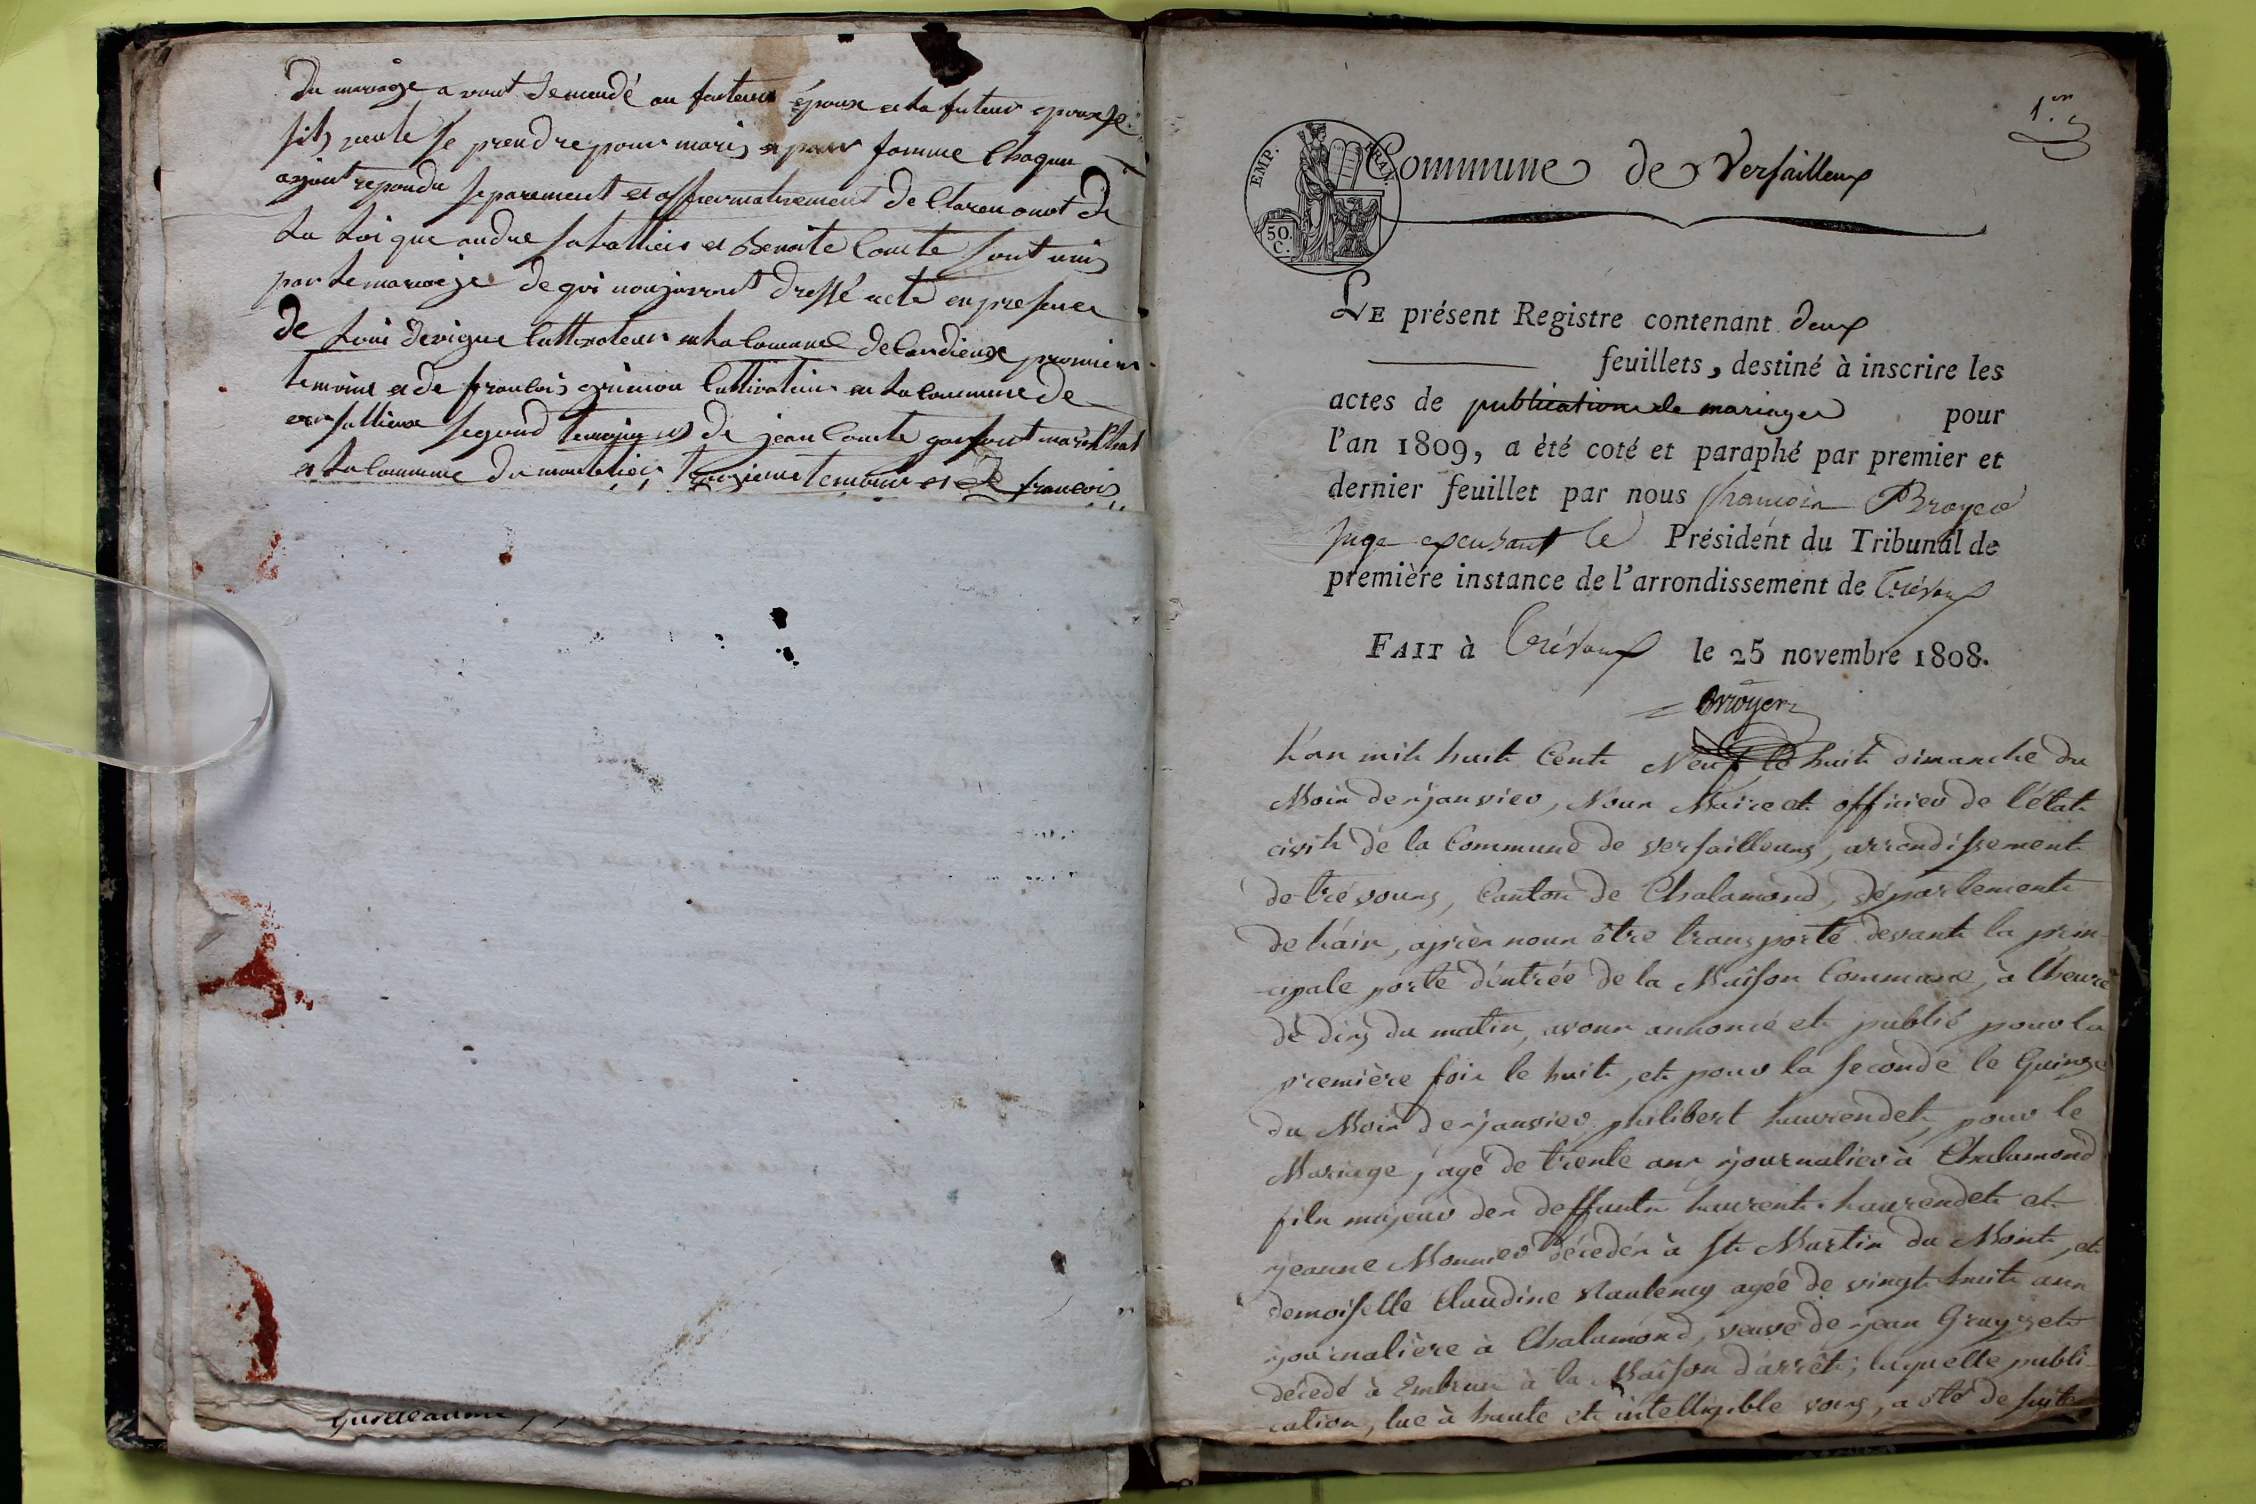 du mariage avont demandé au futeur époux et la futeur epouse
sils veule se prendre pour maris et pour famme Chaqun
ayant repondu separement et affirmativement declaron onot de
La Loi que andre et Benoite Comte sont unis
par Le mariage de qoi nous avons dressé acte en presence
de Louis devigne Cultivateur en La Comune de Condieux premier
temoins et de francois grimon Cultivateur en La Commune de
versallieux segond temoins et de jean Comte marechal
en La Commune du montelier troisieme temoins et de francois
guilleaume
1.er
EMP. FRAN.
50. C.
Commune de Versailleux
LE présent Registre contenant deux
feuillets, destiné à inscrire les
actes de publication de mariages pour
l'an 1809, a èté coté et paraphé par premier et
dernier feuillet par nous françois Broyer
Juge exerçant le Président du Tribunal de
première instance de l'arrondissement de Trévoux
FAIT à Trévoux le 25 novembre 1808.
Broyer
L'an mil huit Cent Neuf le huit dimanche du
Mois de janvier, Nous Maire et officier de l'état
civil de la Commune de Versailleux, arrondissement
de trévoux, Canton de Chalamond, département
de l'ain, après nous être transporté devant la prin-
cipale porte d'entrée de la Maison Commune, à l'heure
de dix du matin, avons annoncé et publié pour la
première fois le huit, et pour la seconde le Quinze
du Mois de janvier philibert Laurendet, pour le
Mariage, agé de trente ans journalier à Chalamond
fils majeur des deffunts Laurent Laurendet et
jeanne Monnier décédés à St Martin du Mont, et
demoiselle Claudine agée de vingt huit ans
journalière à Chalamond, veuve de jean
décédé à Embrun à la Maison d'arrêt; laquelle publi-
cation, lue à haute et intelligible voix, a été de suite